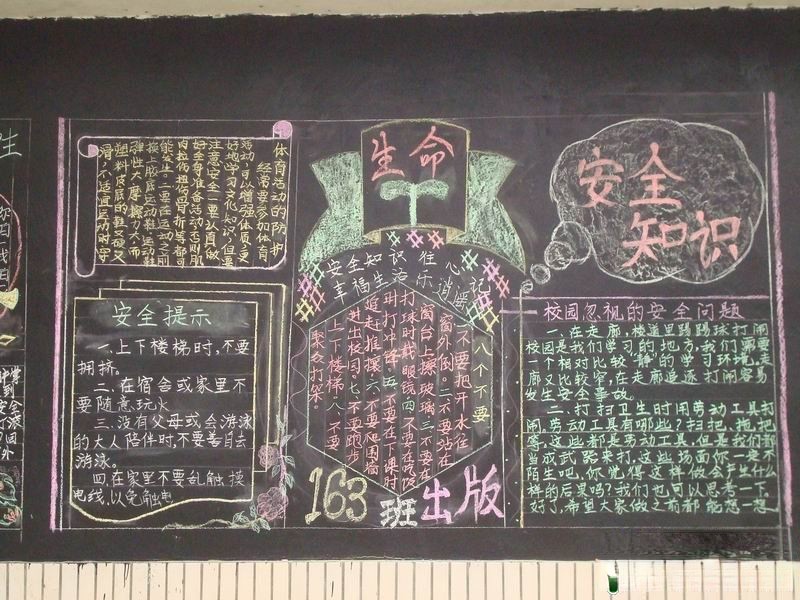 体育活动的防护
经常要参加体育
活动,可以增强体质,更
好地学习文化知识,但要
注意安全。一要认真做
好全身准备活动,否则肌
肉拉伤扭伤骨折等都可
能发生。二要在运动之前
换上胶底运动鞋,运动鞋
弹性大、摩擦力大,而
塑料
滑,不适宜运动时穿
安全提示
一、上下楼梯时,不要
拥挤。
二、在宿舍或家里不
要随意玩火
三、没有父母或会游泳
的大人陪伴时,不要善自去
游泳。
四、在家里不要乱触摸
电线,以免触电
生命
安全知识住心
幸福生活乐消遥记
八个不要
一不要把开水往
窗外倒。二不要站在
窗台上擦玻璃三不要在
打球时戴眼镜四不要在吃饭
时打冲锋。五不要在下课时
追赶推攘六不要爬围墙
进出校园。七不要跑步
上下楼梯.八不要
聚众打架。
163班出版
安全
知识
校园忽视的安全问题
一、在走廊,楼道里踢踢球打闹
校园是我们学习的地方,我们需要
一个相对比较“静”的学习环境,走
廊又比较窄,在走廊追逐打闹容易
发生安全事故。
二、打扫卫生时用劳动工具打
闹,劳动工具有哪些?扫把、拖把
等,这些都是劳动工具,但是我们都
当成武器来打,这些场面你一定不
陌生吧,你觉得这样做会产生什么
样的后果吗?我们也可以思考一下,
好了,希望大家做之前都能想一想